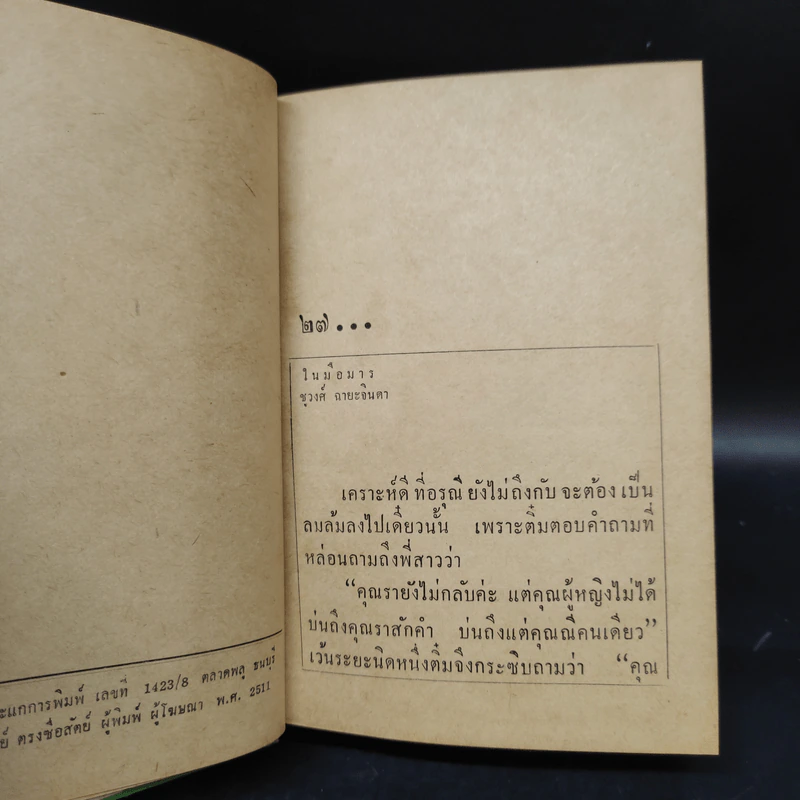 ะแกการพิมพ์ เลขที่ 1423/8 ตลาดพลู ธนบุรี
ย์ ตรงซื่อสัตย์ ผู้พิมพ์ ผู้โฆษณา พ.ศ. 2511
๒๗...
ในมือมาร
ชุวงศ์ ฉายะจินดา
เคราะห์ดี ที่อรุณี ยังไม่ถึงกับ จะต้อง เป็น
ลมล้มลงไปเดี๋ยวนั้น เพราะติ๋มตอบคำถามที่
หล่อนถามถึงพี่สาวว่า
“คุณรายังไม่กลับค่ะ แต่คุณผู้หญิงไม่ได้
บ่นถึงคุณราสักคำ บ่นถึงแต่คุณณีคนเดียว”
เว้นระยะนิดหนึ่งติ๋มจึงกระซิบถามว่า “คุณ